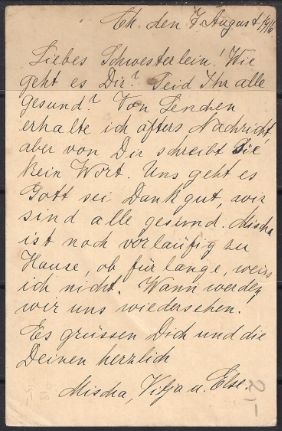 Ch. den 7. August 1916
Liebes Schwesterlein! Wie
geht es Dir? Seid Ihr alle
gesund? Von Lenchen
erhalte ich öfters Nachricht
aber von Dir schreibt sie
kein Wort. Uns geht es
Gott sei Dank gut, wir
sind alle gesund. Mischa
ist noch vorläufig zu
Hause, ob für lange, weiss
ich nicht. Wann werden
wir uns wiedersehen.
Es grüssen Dich und die
Deinen herzlich
Mischa, u. Else.
2,-